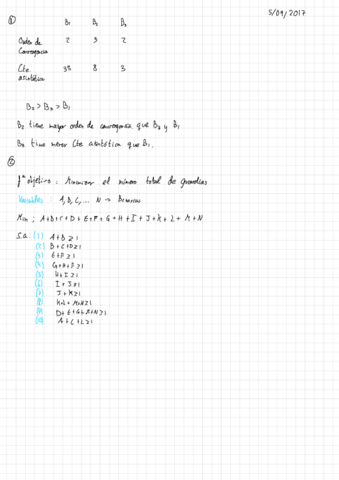 5/09/2017
① B₁ B₂ B₃
Orden de Convergencia 2 3 2
Cte asintótica 38 8 3
B₂ > B₃ > B₁
B₂ tiene mayor orden de convergencia que B₃ y B₁
B₃ tiene menor Cte asintótica que B₁.
②
fⁿ objetivo: Minimizar el número total de guardias
Variables: A, B, C, ... N → Binarias
Min ; A+B+C+D+E+F+G+H+I+J+K+L+M+N
S.a: (1) A+B≥1
(2) B+C+D≥1
(3) E+F≥1
(4) G+H+F≥1
(5) H+I≥1
(6) I+J≥1
(7) J+K≥1
(8) K+L+M+N≥1
(9) D+E+G+M+N≥1
(10) A+C+L≥1